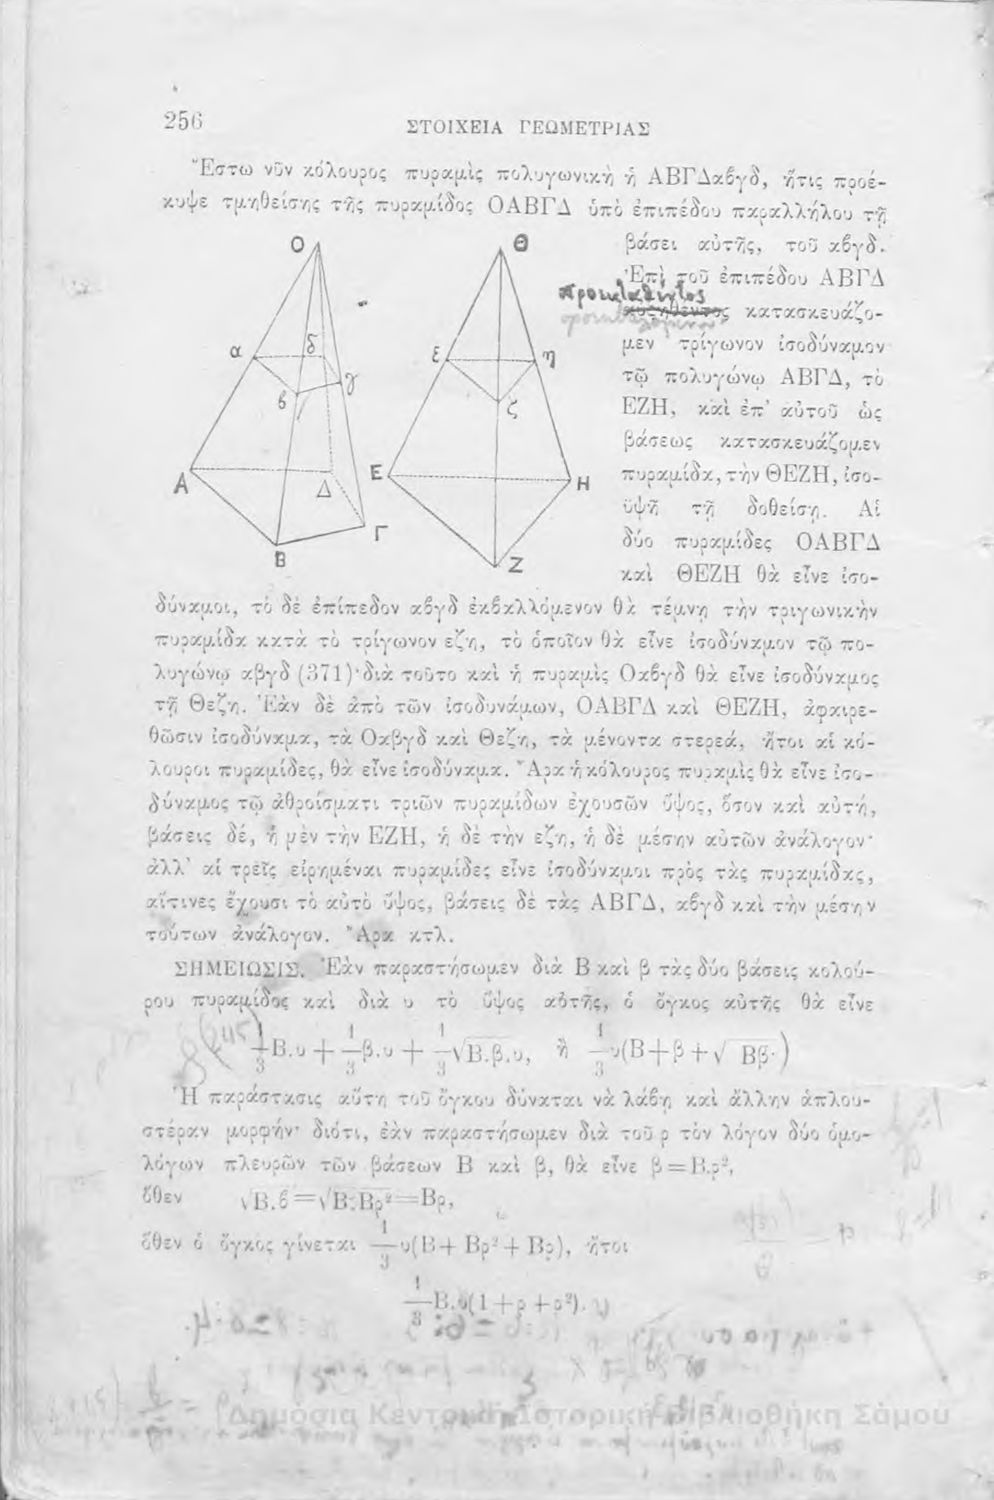 256
ΣΤΟΙΧΕΙΑ ΓΕΩΜΕΤΡΙΑΣ
Ἔστω νῦν κόλουρος πυραμὶς πολυγωνικὴ ἡ ΑΒΓΔαβγδ, ἥτις προέ-
κυψε τμηθείσης τῆς πυραμίδος ΟΑΒΓΔ ὑπὸ ἐπιπέδου παραλλήλου τῇ
βάσει αὐτῆς, τοῦ αβγδ.
Ἐπὶ τοῦ ἐπιπέδου ΑΒΓΔ
κατασκευάζο-
μεν τρίγωνον ἰσοδύναμον
τῷ πολυγώνῳ ΑΒΓΔ, τὸ
ΕΖΗ, καὶ ἐπ' αὐτοῦ ὡς
βάσεως κατασκευάζομεν
πυραμίδα, τὴν ΘΕΖΗ, ἰσο-
ϋψῆ τῇ δοθείσῃ. Αἱ
δύο πυραμίδες ΟΑΒΓΔ
καὶ ΘΕΖΗ θὰ εἶνε ἰσο-
Ο Θ
α δ ε η
β γ ζ
Α Δ Ε Η
Β Γ Ζ
δύναμοι, τὸ δὲ ἐπίπεδον αβγδ ἐκβαλλόμενον θὰ τέμνῃ τὴν τριγωνικὴν
πυραμίδα κατὰ τὸ τρίγωνον εζη, τὸ ὁποῖον θὰ εἶνε ἰσοδύναμον τῷ πο-
λυγώνῳ αβγδ (371)· διὰ τοῦτο καὶ ἡ πυραμὶς Οαβγδ θὰ εἶνε ἰσοδύναμος
τῇ Θεζη. Ἐὰν δὲ ἀπὸ τῶν ἰσοδυνάμων, ΟΑΒΓΔ καὶ ΘΕΖΗ, ἀφαιρε-
θῶσιν ἰσοδύναμα, τὰ Οαβγδ καὶ Θεζη, τὰ μένοντα στερεά, ἤτοι αἱ κό-
λουροι πυραμίδες, θὰ εἶνε ἰσοδύναμα. Ἄρα ἡ κόλουρος πυραμὶς θὰ εἶνε ἰσο-
δύναμος τῷ ἀθροίσματι τριῶν πυραμίδων ἐχουσῶν ὕψος, ὅσον καὶ αὐτή,
βάσεις δέ, ἡ μὲν τὴν ΕΖΗ, ἡ δὲ τὴν εζη, ἡ δὲ μέσην αὐτῶν ἀνάλογον·
ἀλλ' αἱ τρεῖς εἰρημέναι πυραμίδες εἶνε ἰσοδύναμοι πρὸς τὰς πυραμίδας,
αἵτινες ἔχουσι τὸ αὐτὸ ὕψος, βάσεις δὲ τὰς ΑΒΓΔ, αβγδ καὶ τὴν μέσην
τούτων ἀνάλογον. Ἄρα κτλ.
ΣΗΜΕΙΩΣΙΣ. Ἐὰν παραστήσωμεν διὰ Β καὶ β τὰς δύο βάσεις κολού-
ρου πυραμίδος καὶ διὰ υ τὸ ὕψος αὐτῆς, ὁ ὄγκος αὐτῆς θὰ εἶνε
1/3 Β.υ + 1/3 β.υ + 1/3 √Β.β.υ, ἢ 1/3 υ(Β+β+√Ββ·)
Ἡ παράστασις αὕτη τοῦ ὄγκου δύναται νὰ λάβῃ καὶ ἄλλην ἁπλου-
στέραν μορφήν· διότι, ἐὰν παραστήσωμεν διὰ τοῦ ρ τὸν λόγον δύο ὁμο-
λόγων πλευρῶν τῶν βάσεων Β καὶ β, θὰ εἶνε β = Β.ρ²,
ὅθεν √Β.β = √Β.Βρ² = Βρ,
ὅθεν ὁ ὄγκος γίνεται 1/3 υ(Β + Βρ² + Βρ), ἤτοι
1/3 Β.υ(1 + ρ + ρ²).
Δημόσια Κεντρική Ιστορική Βιβλιοθήκη Σάμου